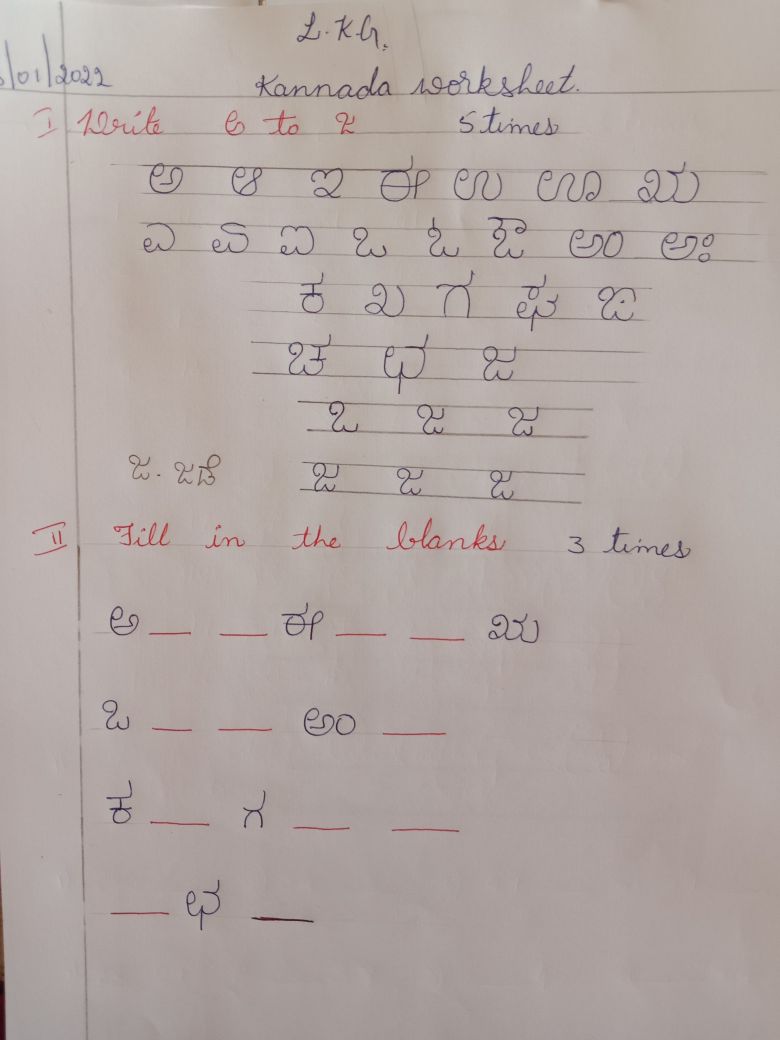 L.K.G.
/01/2022
Kannada worksheet.
I Write ಅ to ಜ 5 times
ಅ ಆ ಇ ಈ ಉ ಊ ಋ
ಎ ಏ ಐ ಒ ಓ ಔ ಅಂ ಅಃ
ಕ ಖ ಗ ಘ ಙ
ಚ ಛ ಜ
ಜ ಜ
ಜ. ಜಡೆ ಜ ಜ ಜ
II Fill in the blanks 3 times
ಅ __ __ ಈ __ __ ಋ
ಒ __ __ ಅಂ __
ಕ __ ಗ __ __
__ ಛ __